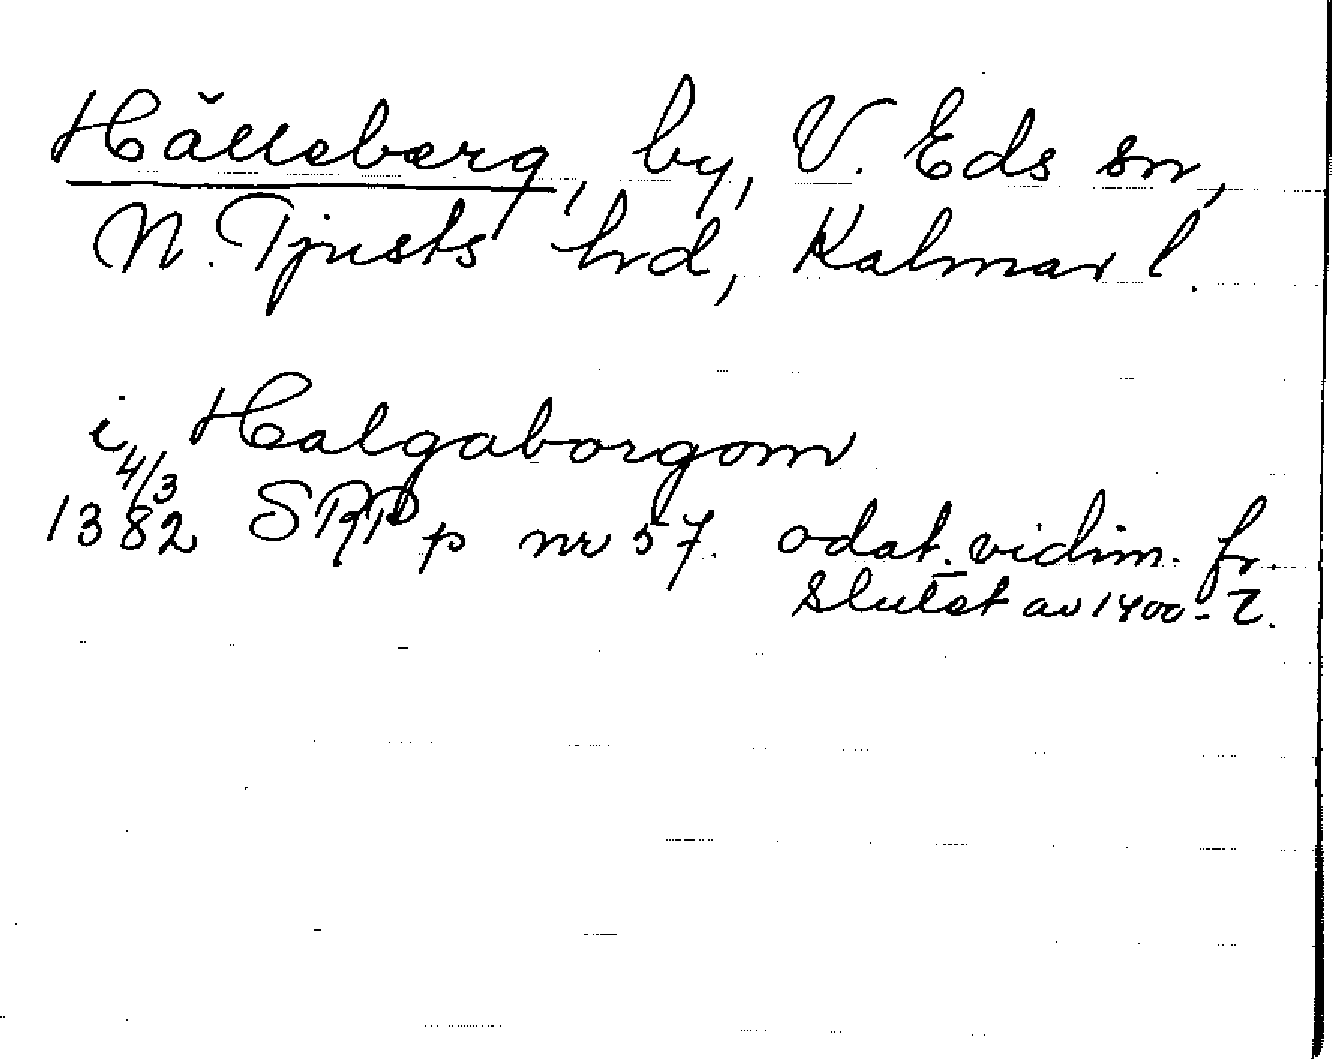 Hälleberg, by, V. Eds sn,
N. Tjusts hd, Kalmar l.
i Halgaborgom
4/3
1382 SRPp nr 57. odat. vidim. fr.
slutet av 1400-t.